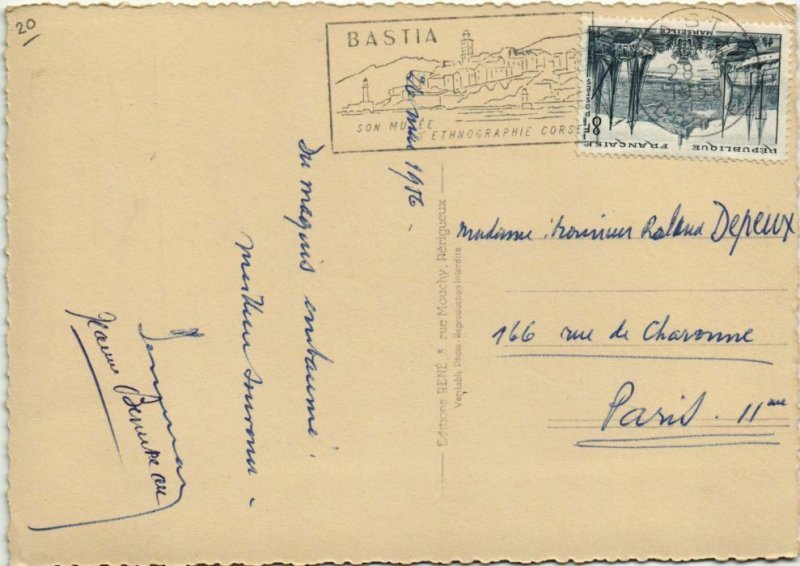 20
BASTIA
SON MUSÉE
D'ETHNOGRAPHIE CORSE
MARSEILLE
28
8F
RÉPUBLIQUE FRANÇAISE
26 mars 1956 -
Du maquis embaumé !
Meilleur souvenir -
Jeanne
Editions RENÉ, rue Mouchy, Périgueux
Véritable Photo - Reproduction interdite
Madame, Monsieur Roland Depeux
166 rue de Charonne
Paris. 11eme